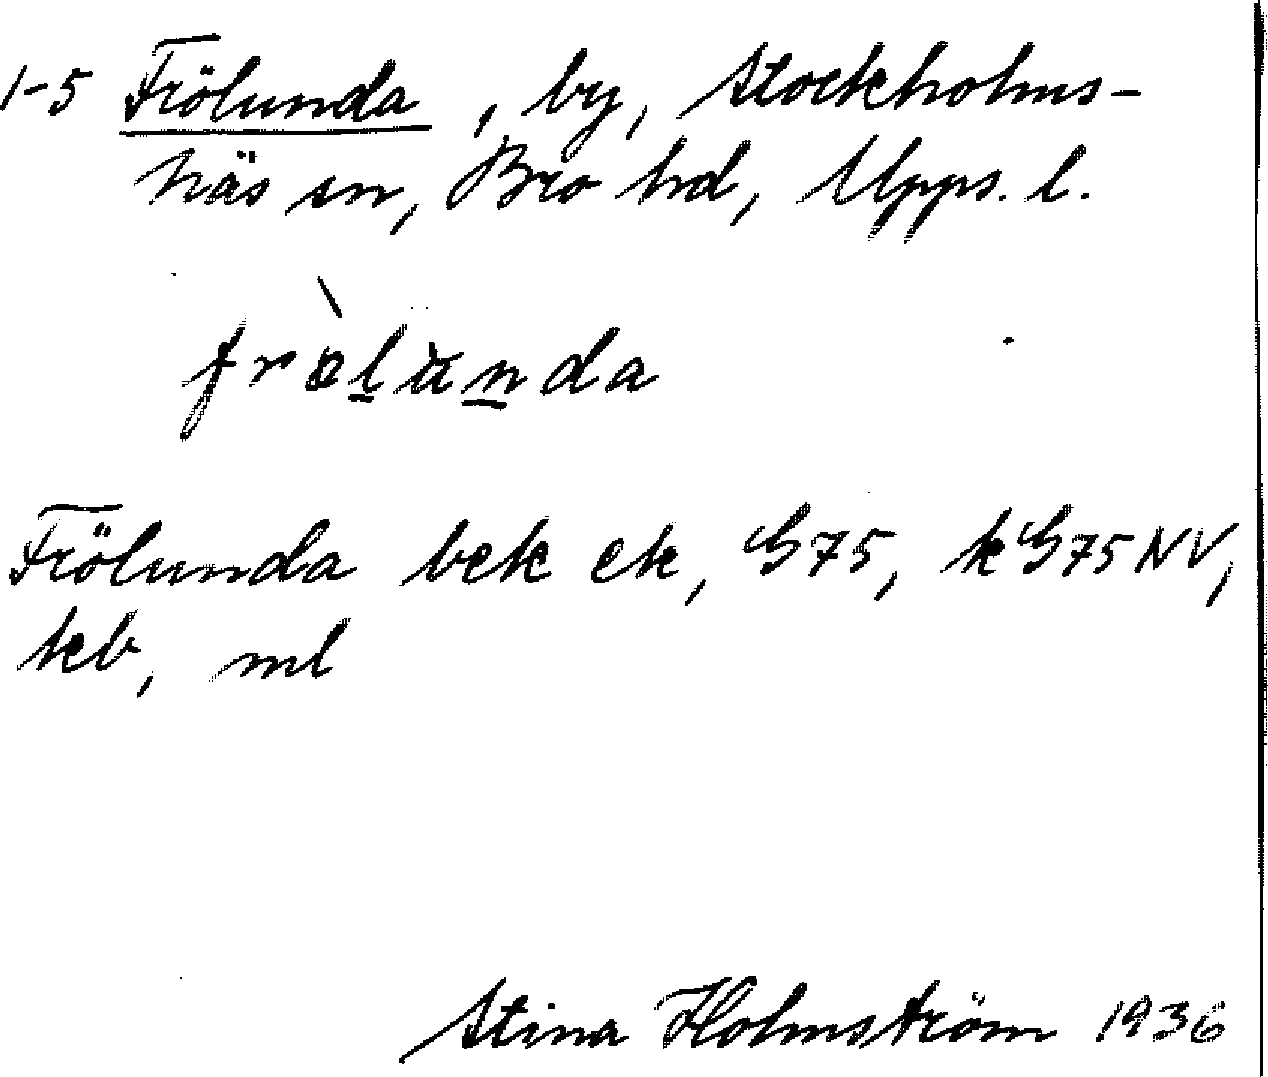 1-5 Frölunda, by, Stockholms-
näs sn, Bro hd, Upps. l.
frö̀lùnda
Frölunda bek ek, G75, kG75NV,
kb, ml
Stina Holmström 1936